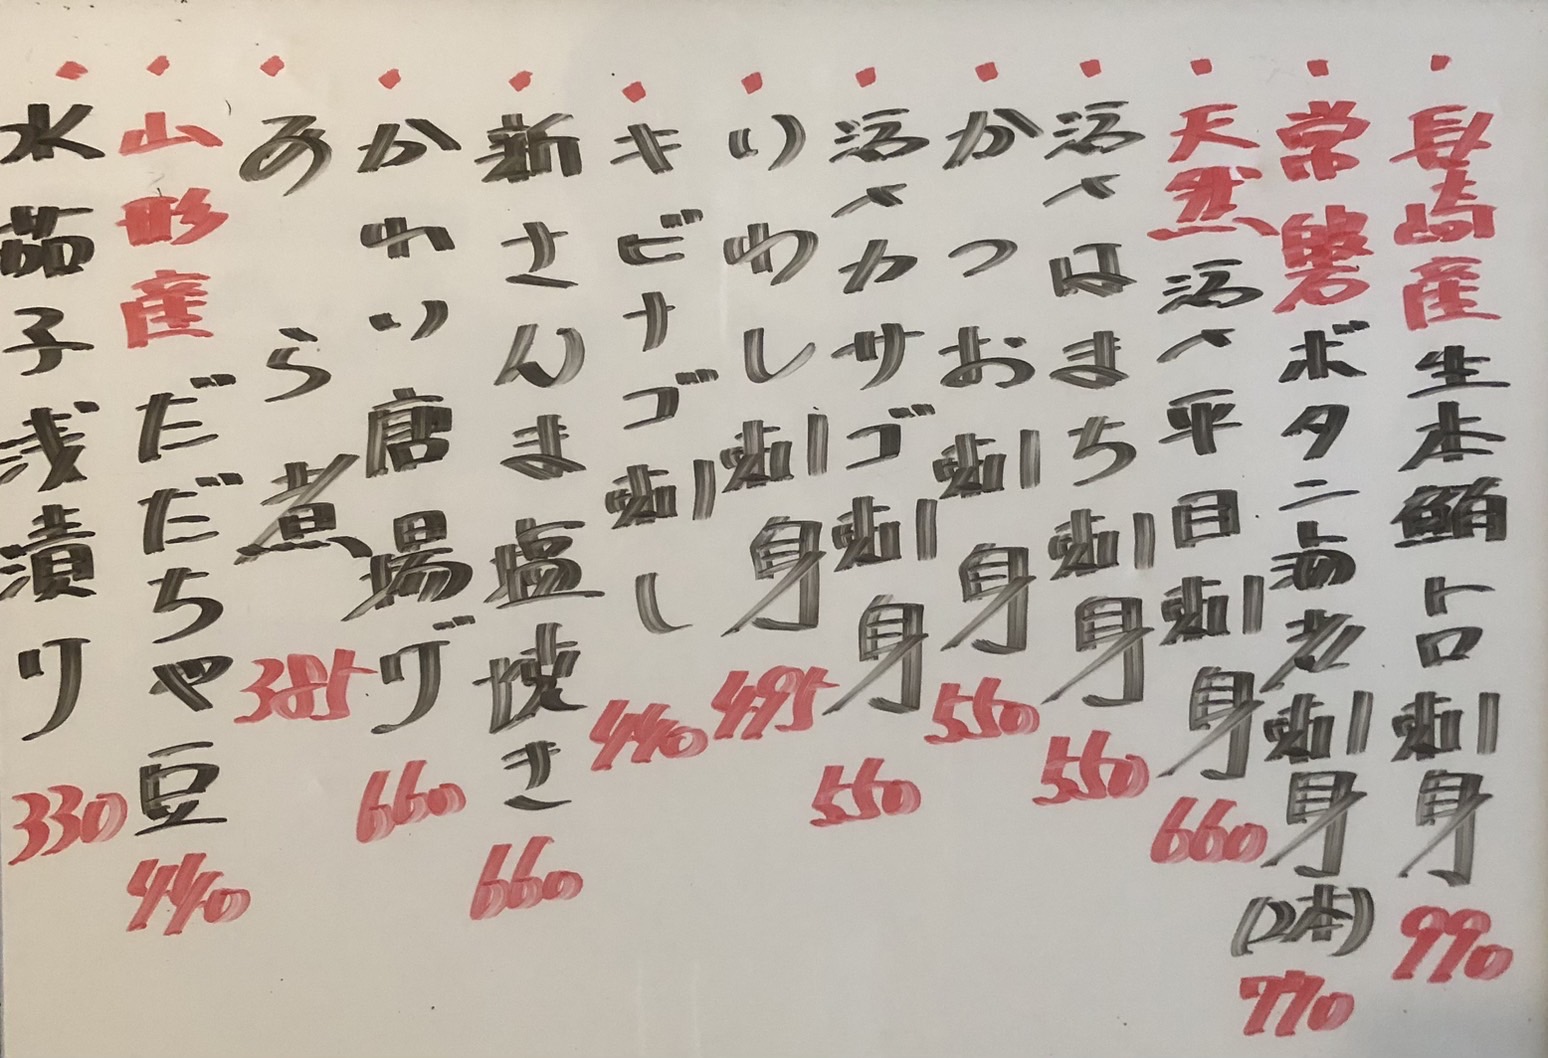 ・長崎産生本鮪トロ刺身 990
・常磐ボタン海老刺身(2本) 770
・天然活〆平目刺身 660
・活〆はまち刺身 550
・かつお刺身 550
・活〆カサゴ刺身 550
・いわし刺身 495
・キビナゴ刺し 440
・新さんま塩焼き 660
・かれい唐揚げ 660
・あら煮 385
・山形産だだちゃ豆 440
・水茄子浅漬け 330